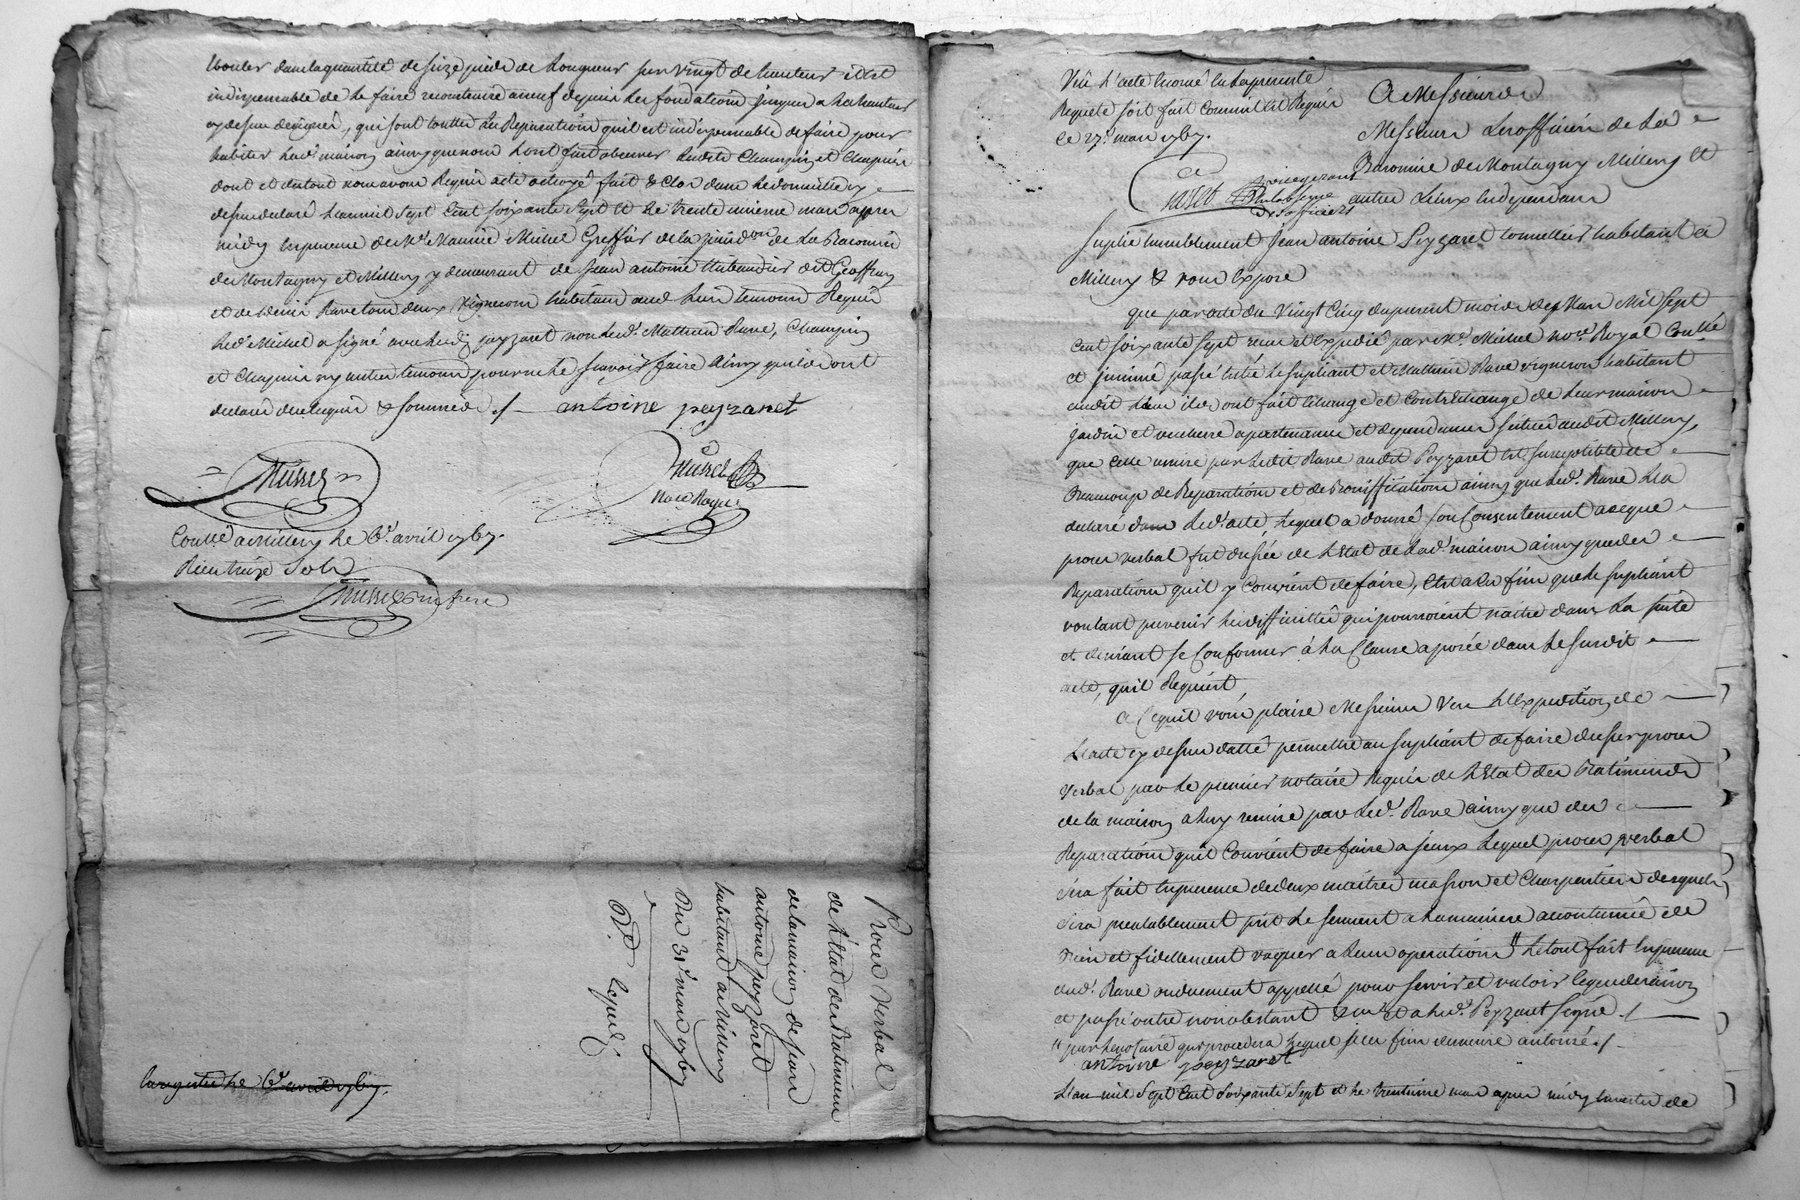 dans la quantité de seize pieds de longueur sur vingt de hauteur et est
indispensable de le faire reconstruire a neuf depuis les fondations jusques a la hauteur
cy dessus designée, qui sont touttes les Reparations quil est indispensable de faire pour
habiter lad. maison ainsy que nous l'ont fait observer lesdits Champin et Chapuis
dont et du tout nous avons Requis acte octroyé fait & Clos dans le domicille cy
dessus declaré L'an mil Sept Cent soixante Sept et le trente unieme mars apres
midy en presence de Me Michel Greffier de la jurisdon de la Baronnie
de Montagny et Millery y demeurant de Jean antoine dit Geoffray
et de deux vignerons habitans aud. lieu temoins Requis
led. Michel a signé avec led. peyzaret non led. Mathieu Rave, Champin
et Chapuis ny autre temoin pour ne le sçavoir faire ainsy quils ont
declaré de ce enquis & sommés ./. antoine peyzaret
Michel
No.re Royal
Conllé a Millery le 6e avril 1767.
Reçu treize Sols
Procès Verbal
de l'état des Batimens
de la maison de jean
antoine peyzaret
habitant a Millery
Du 31e mars 1767
Vû l'acte enoncé en la presente
Requete soit fait Comme est Requis
ce 27e mars 1767.
A Messieurs
Messieurs Les officiers de la
Baronnie de Montagny Millery et
autres Lieux en dependans
Suplie humblement Jean antoine Peyzaret tonnellier habitant a
Millery & vous Expose
que par acte du Vingt Cinq du present mois de Mars Mil Sept
Cent soixante Sept reçu et Expedié par Me Michel no.re Royal Conllé
et passé entre le supliant et Mathieu Rave vigneron habitant
audit Lieu ils ont fait Echange et Contrechange de Leurs maison
jardin et apartenances et dependances situés audit Millery,
que Celle remise par Ledit Rave audit Peyzaret est susceptible de
Beaucoup de Reparations et de Bonniffications ainsy que led. Rave la
declaré dans led. acte, Lequel a donné son Consentement a ce que
proces verbal fut dressée de l'Etat de lad. maison ainsy que des
Reparations quil y Convient de faire, C'est a la fin que le supliant
voulant prevenir les difficultés qui pourroient naitre dans la suite
et desirant se Conformer à la Clause aposée dans le susdit
acte, quil Requiert,
A Ce quil vous plaise Messieurs Veu L'Expedition de
L'acte cy dessus datté permettre au supliant de faire dresser proces
verbal par le premier notaire Requis de L'Etat des Batiments
de la maison a luy remise par led. Rave ainsy que des
Reparations quil Convient de faire a jceux Lequel proces verbal
sera fait en presence de deux maitres masson et Charpentier desquels
sera prealablement prit le serment a la maniere accoutumée de
Bien et fidellement vaquer a leurs operations // Le tout fait en presence
dud. Rave ou duement appellé pour servir et valoir Ce que de raison
et passé outre nonobstant & a led. Peyzaret signé ./.
// par le notaire qui procedera Lequel a ces fins demeure autorisé ./.
antoine peyzaret
L'an mil Sept Cent Soixante Sept et le trentunieme mars apres midy de